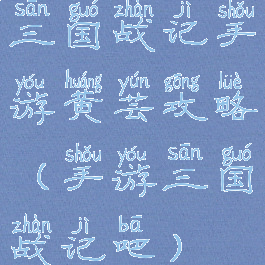 sān guó zhàn jì shǒu
三国战记手
yóu huáng yún gōng lüè
游黄芸攻略
shǒu yóu sān guó
（手游三国
zhàn jì bā
战记吧）